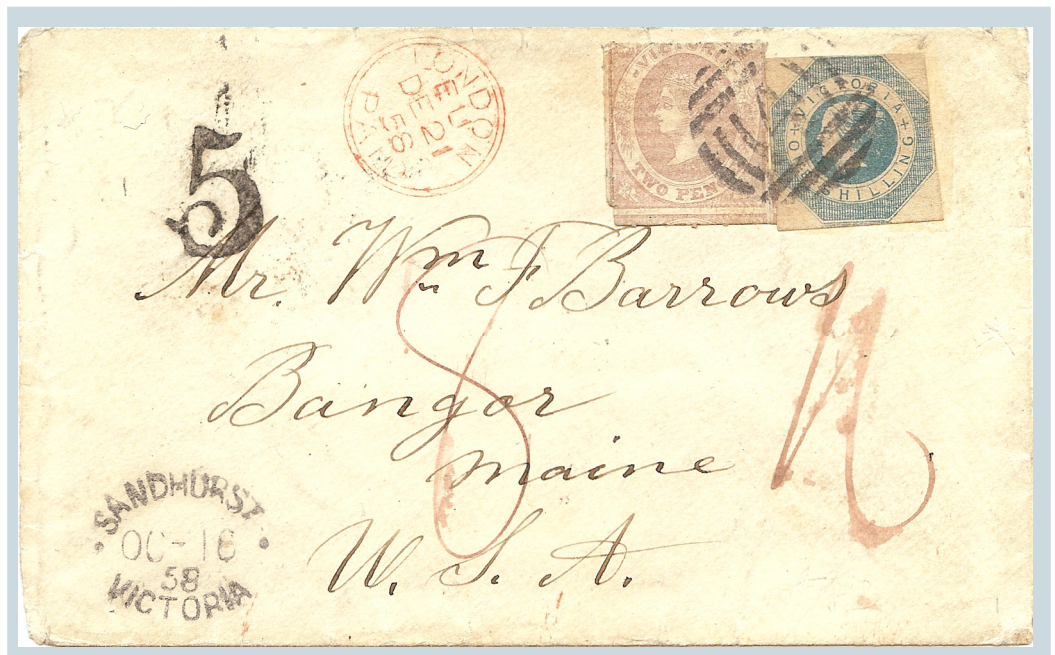 LONDON
EU
DE 21
58
PAID
VICTORIA
TWO PEN
VICTORIA
ONE SHILLING
5
Mr. Wm F Barrows
Bangor
Maine
U. S. A.
8
SANDHURST
OC-16
58
VICTORIA